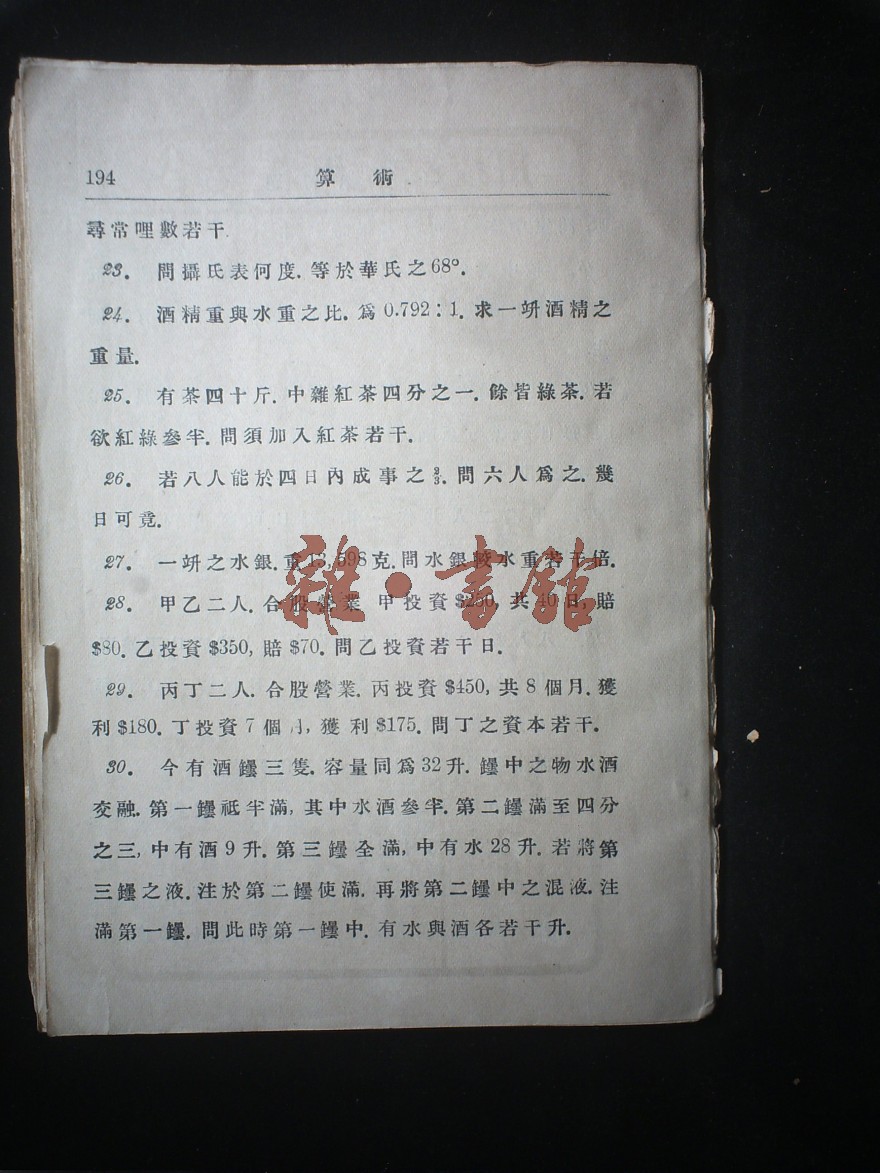 194 算術
尋常哩數若干.
23. 問攝氏表何度.等於華氏之68°.
24. 酒精重與水重之比.爲0.792:1.求一竔酒精之
重量.
25. 有茶四十斤.中雜紅茶四分之一.餘皆綠茶.若
欲紅綠參半.問須加入紅茶若干.
26. 若八人能於四日內成事之⅔.問六人爲之.幾
日可竟.
27. 一竔之水銀.重13,598克.問水銀較水重若干倍.
28. 甲乙二人.合股營業 甲投資$250,共40日,賠
$80.乙投資$350,賠$70.問乙投資若干日.
29. 丙丁二人.合股營業.丙投資$450,共8個月.獲
利$180.丁投資7個月,獲利$175.問丁之資本若干.
30. 今有酒鑸三隻.容量同爲32升.鑸中之物水酒
交融.第一鑸祇半滿,其中水酒參半.第二鑸滿至四分
之三,中有酒9升.第三鑸全滿,中有水28升.若將第
三鑸之液.注於第二鑸使滿.再將第二鑸中之混液.注
滿第一鑸.問此時第一鑸中.有水與酒各若干升.
雜·書館